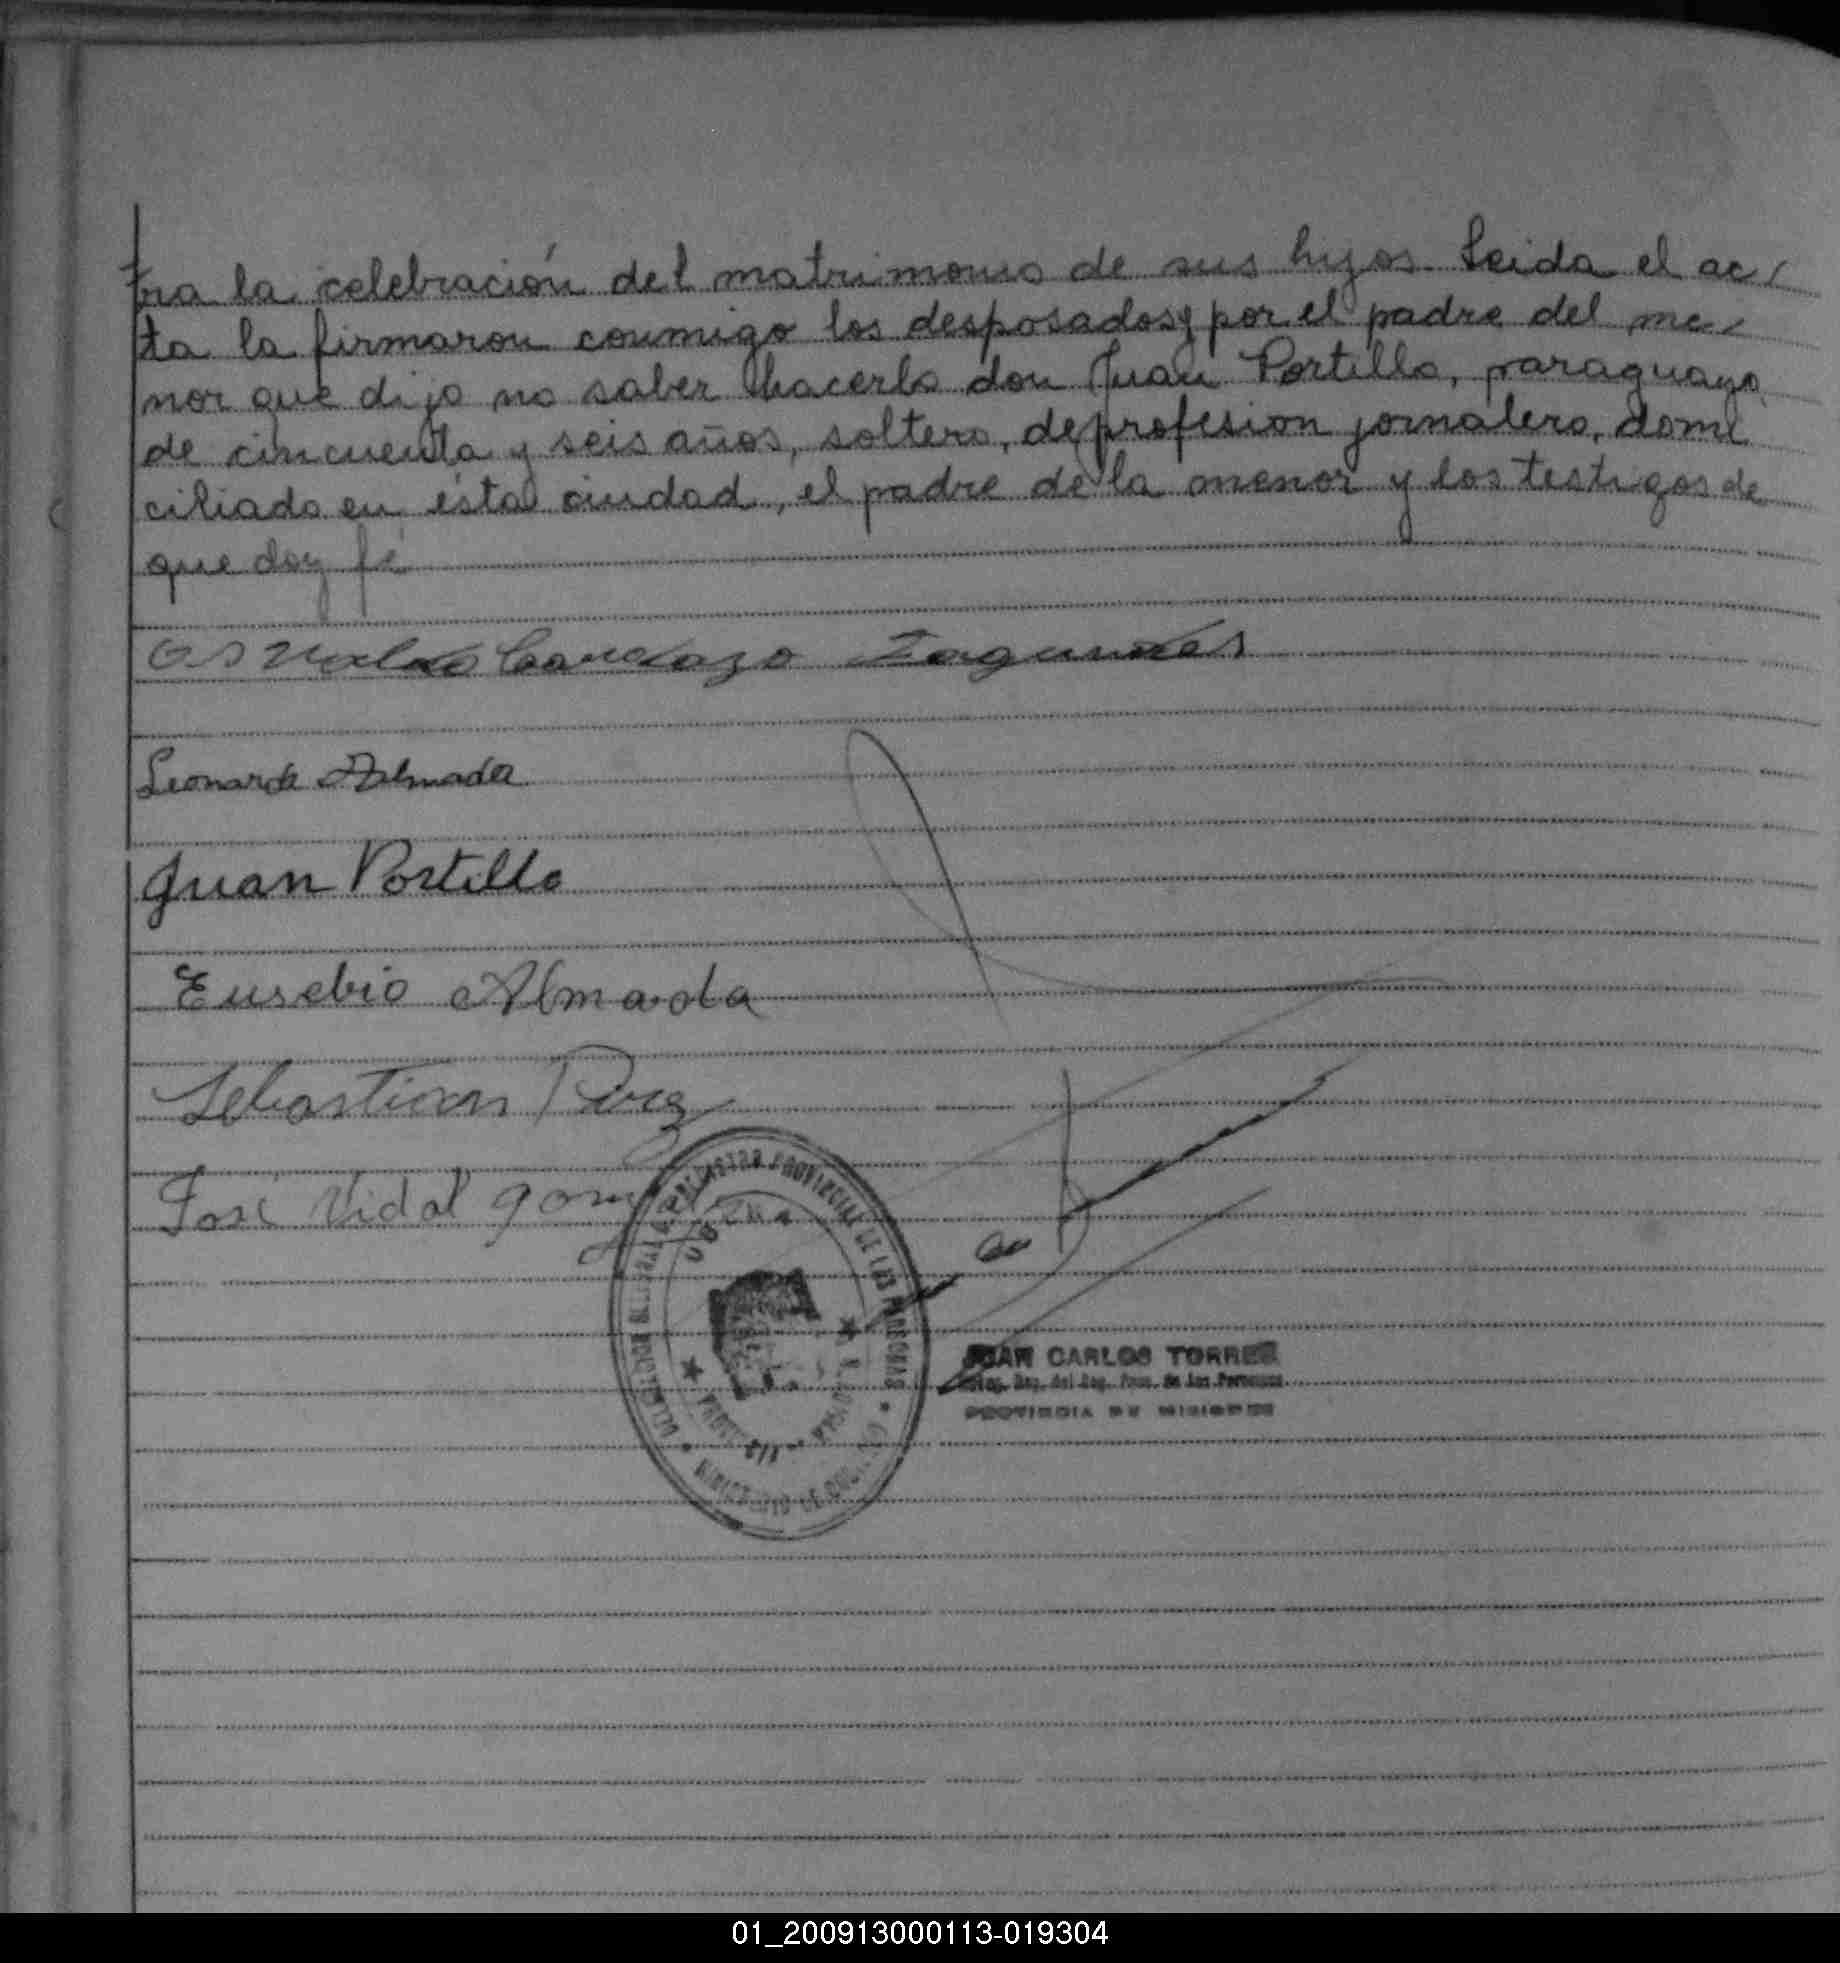 ra la celebración del matrimonio de sus hijos. Leida el ac/
ta la firmaron conmigo los desposados y por el padre del me/
nor que dijo no saber hacerlo don Juan Portillo, paraguayo,
de cincuenta y seis años, soltero, de profesion jornalero, domi
ciliado en ésta ciudad, el padre de la menor y los testigos de
que doy fé
Osvaldo Cardozo Fagundes
Leonarda Almada
Juan Portillo
Eusebio Almada
Sebastian
José Vidal
REGISTRO PROVINCIAL DE LAS PERSONAS
MINISTERIO DE GOBIERNO
JUAN CARLOS TORRES
PROVINCIA DE MISIONES
01_200913000113-019304